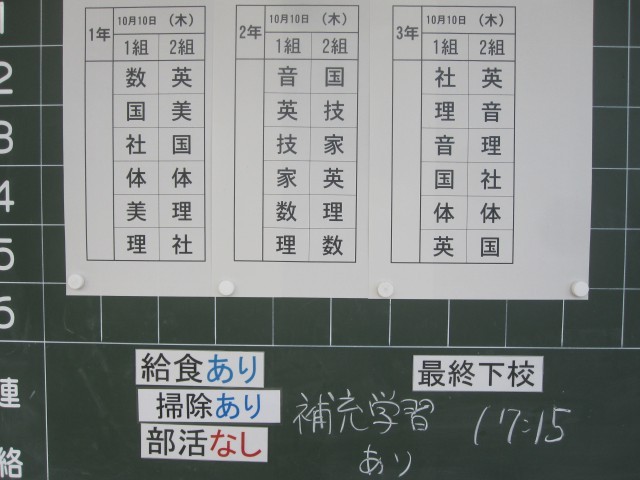 1年 10月10日 (木)
1組 2組
数 英
国 美
社 国
体 体
美 理
理 社
2年 10月10日 (木)
1組 2組
音 国
英 技
技 家
家 英
数 理
理 数
3年 10月10日 (木)
1組 2組
社 英
理 音
音 理
国 社
体 体
英 国
1
2
3
4
5
6
連
絡
給食あり
掃除あり
部活なし
補充学習
あり
最終下校
17:15